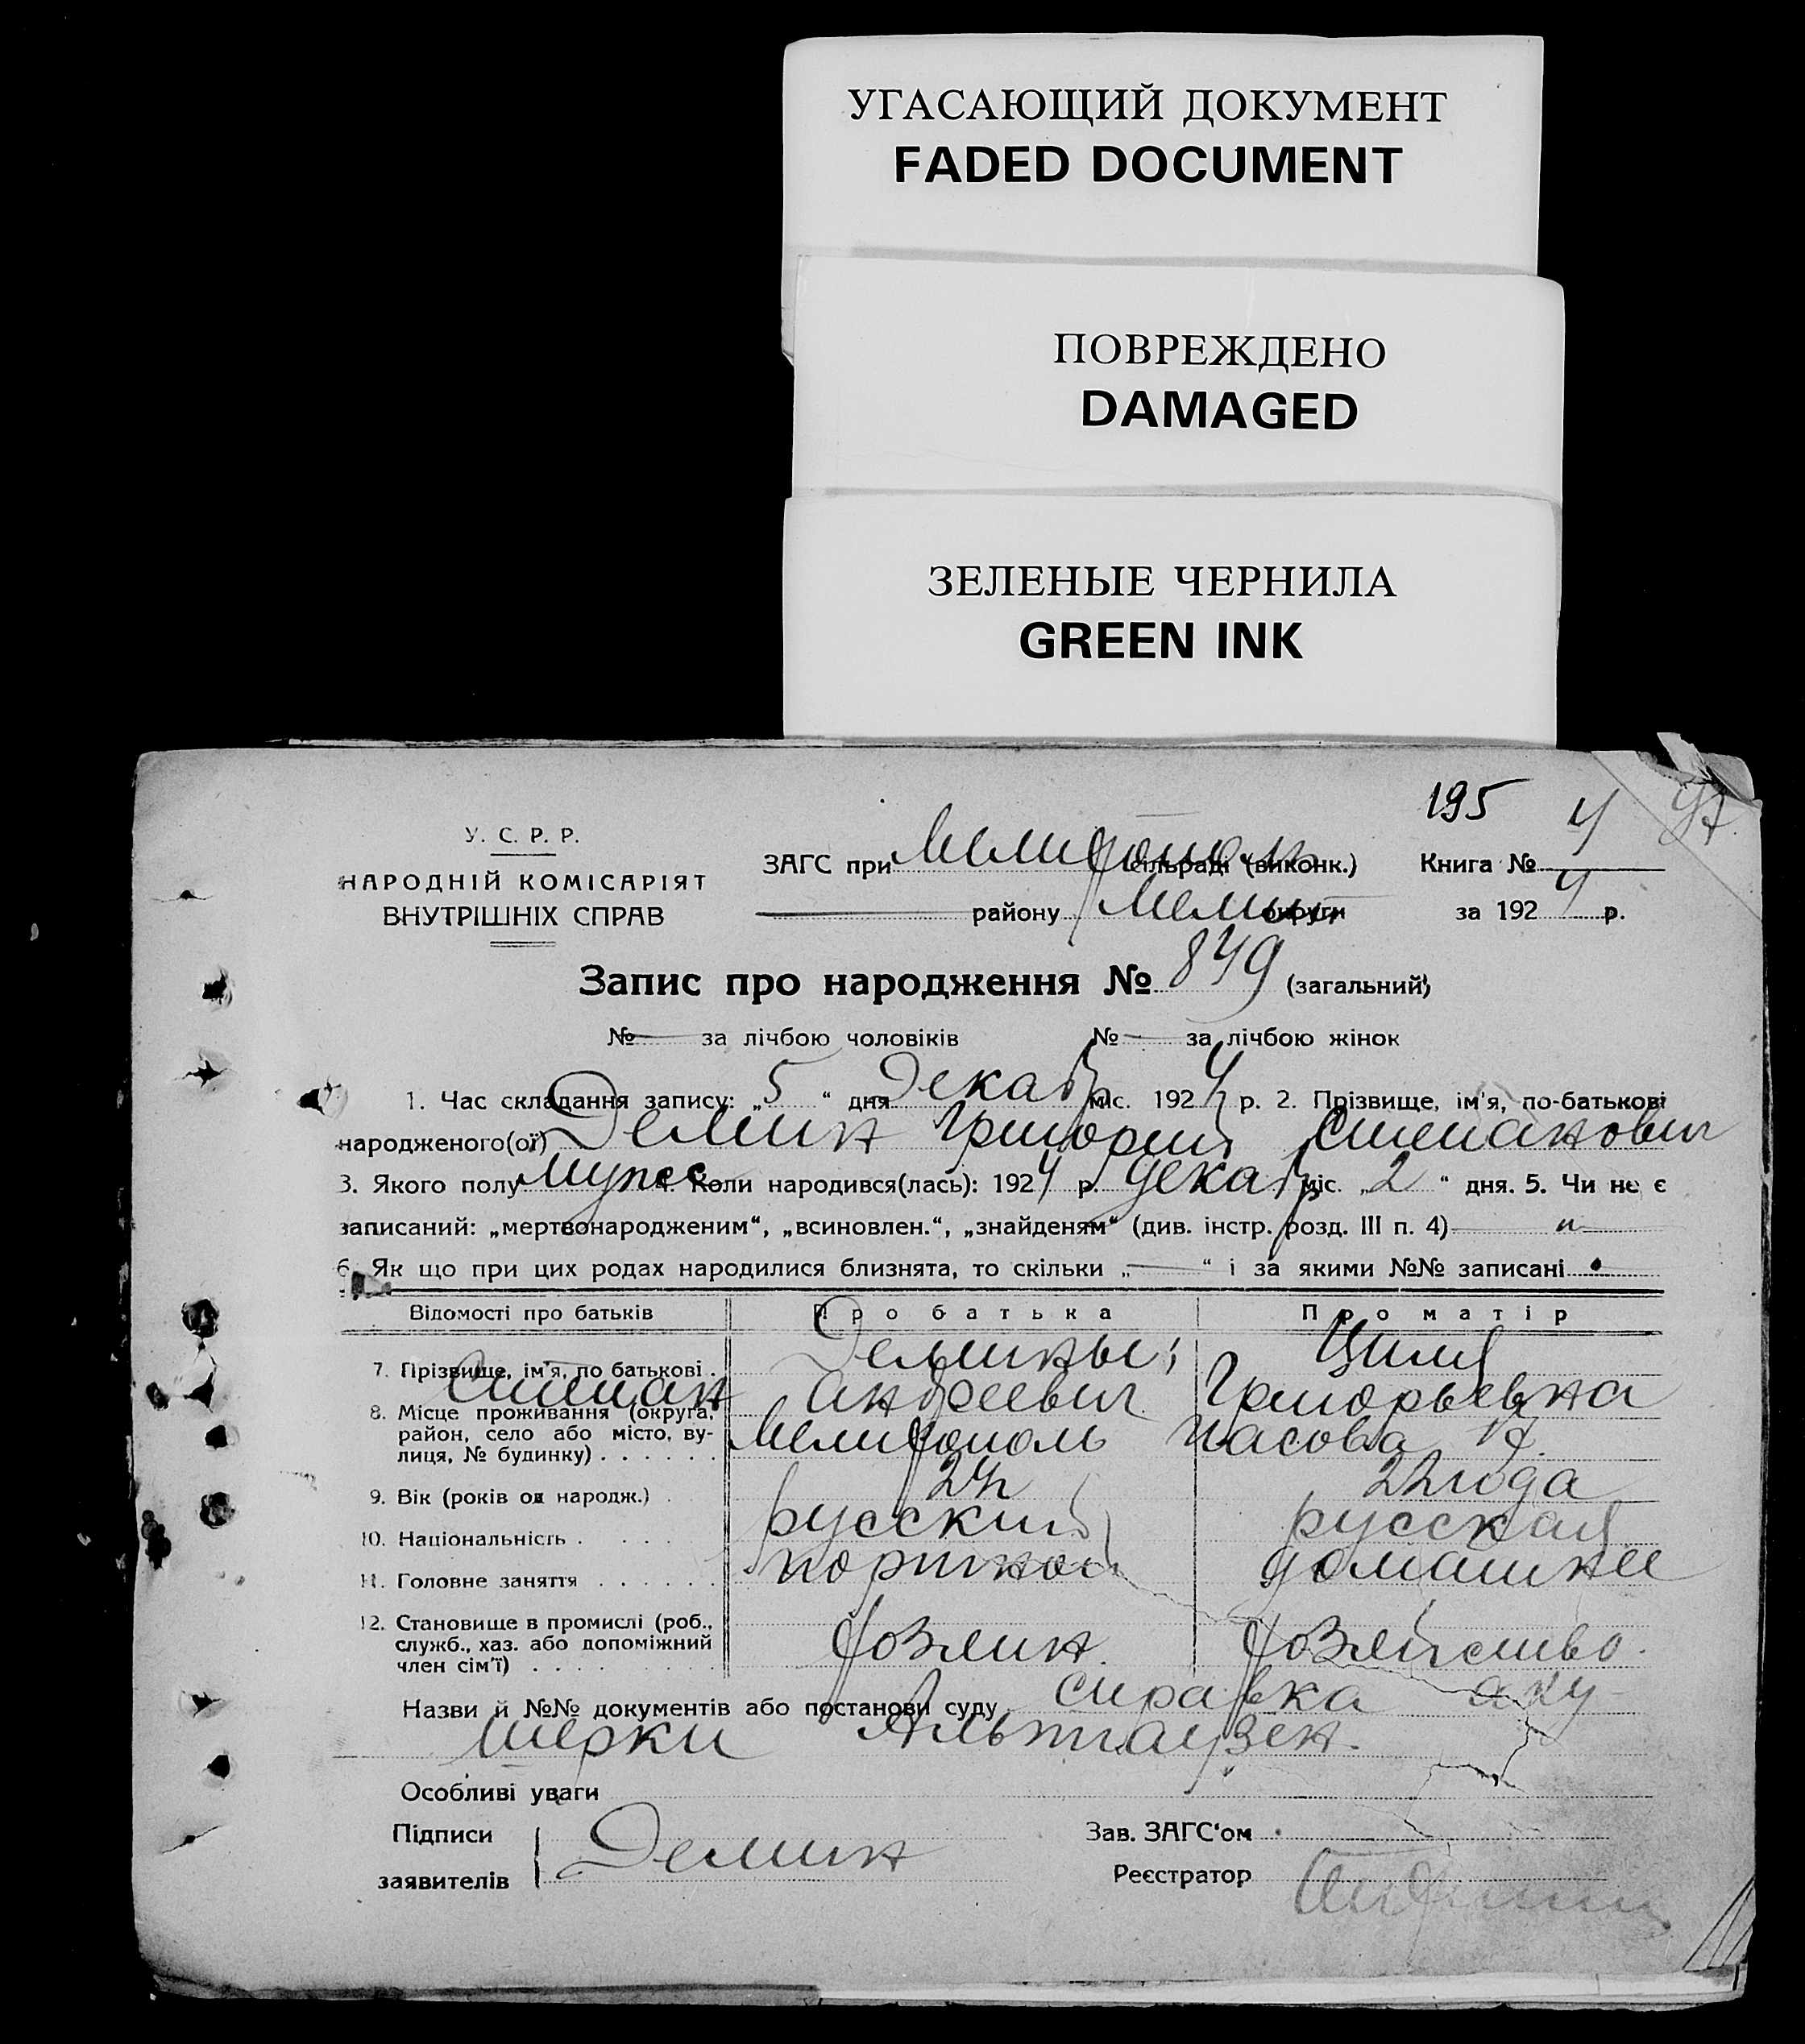 УГАСАЮЩИЙ ДОКУМЕНТ
FADED DOCUMENT
ПОВРЕЖДЕНО
DAMAGED
ЗЕЛЕНЫЕ ЧЕРНИЛА
GREEN INK
195
У. С. Р. Р.
НАРОДНІЙ КОМІСАРІЯТ
ВНУТРІШНІХ СПРАВ
ЗАГС при Мелитополь сільраді (виконк.) Книга № 4
району Мелит округи за 1924 р.
Запис про народження № 849 (загальний)
№ за лічбою чоловіків № за лічбою жінок
1. Час складання запису: „5“ дня Декаб міс. 1924 р. 2. Прізвище, ім'я, по-батькові
народженого(ої) Демин Григорий Степанович
3. Якого полу муж. 4. Коли народився(лась): 1924 р. декаб міс. „2“ дня. 5. Чи не є
записаний: „мертвонародженим“, „всиновлен.“, „знайденям“ (див. інстр. розд. III п. 4) „
6. Як що при цих родах народилися близнята, то скільки „ “ і за якими №№ записані
Відомості про батьків Про батька Про матір
7. Прізвище, ім'я, по батькові Демины; Циля
Степан Андреевич Григорьевна
8. Місце проживання (округа, район, село або місто, вулиця, № будинку) Мелитополь Часова
9. Вік (років од народж.) 24 22 года
10. Національність русский русская
11. Головне заняття портной домашнее
12. Становище в промислі (роб., служб., хаз. або допоміжний член сім'ї) хозяин. хозяйство.
Назви й №№ документів або постанови суду справка аку-
шерки Альтгаузен.
Особливі уваги
Підписи заявителів Демин
Зав. ЗАГС'ом
Реєстратор